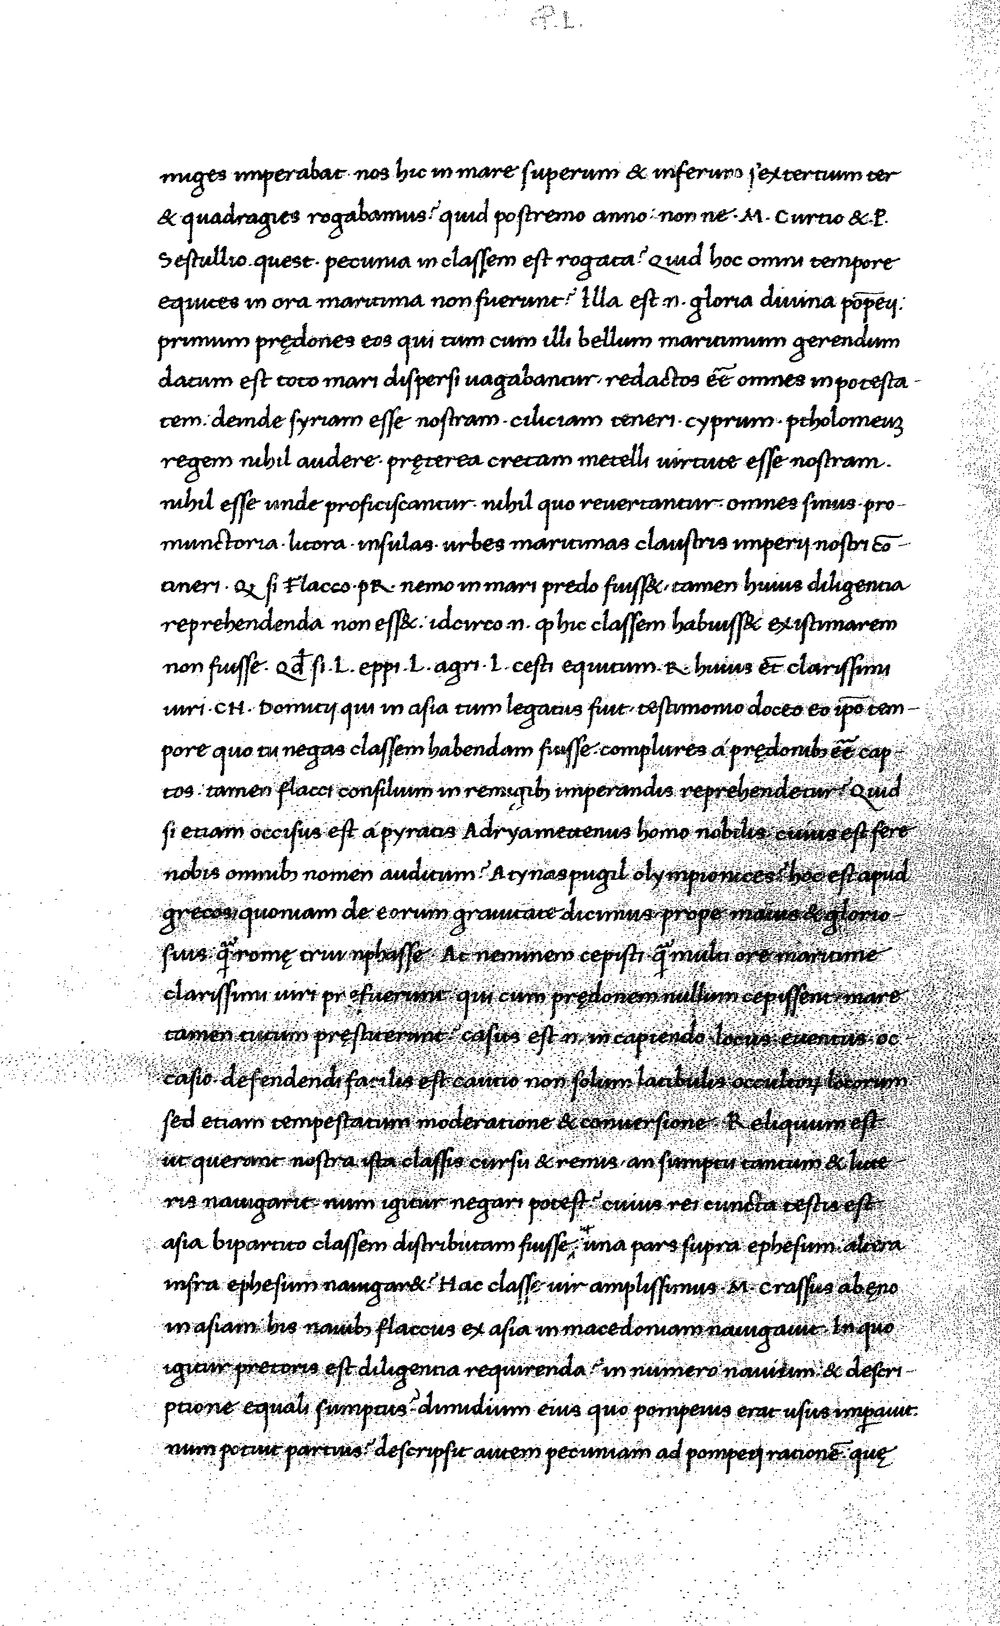 P. L.
miges imperabat· nos hic in mare superum & inferum sextertium ter
& quadragies rogabamus? quid postremo anno· non ne· M. Curtio & P.
Sestullio· quest· pecunia in classem est rogata? Quid hoc omni tempore
equites in ora maritima non fuerunt? Illa est .n. gloria diuina po̅peij:
primum prędones eos qui tum cum illi bellum maritimum gerendum
datum est toto mari dispersi uagabantur· redactos ee̅ omnes in potesta-
tem: deinde syriam esse nostram· ciliciam teneri· cyprum· ptholomeuꝫ
regem nihil audere· pręterea cretam metelli uirtute esse nostram.
nihil esse unde proficiscantur· nihil quo reuertantur· omnes sinus· pro-
munctoria· litora· insulas· urbes maritimas claustris imperij nostri co̅-
tineri· Q si Flacco· pR· nemo in mari predo fuiss&· tamen huius diligentia
reprehendenda non ess&: idcirco .n. ꝙ hic classem habuiss& existimarem
non fuisse. Qd̅ si .L. eppi .L. agri .L. cesti equitum .R. huius et̅ clarissimi
uiri· CN· Domitij qui in asia tum legatus fuit· testimonio doceo eo ip̅o tem-
pore quo tu negas classem habendam fuisse· complures a prędonibꝫ ee̅ cap-
tos· tamen flacci consilium in remigibꝫ imperandis reprehendetur? Quid
si etiam occisus est a pyratis Adryamettenus homo nobilis· cuius est fere
nobis omnibꝫ nomen auditum? Atynas pugil olympionices? hoc est apud
grecos, quoniam de eorum grauitate dicimus· prope maius & glorio-
sius q̅ romę triumphasse. At neminem cepisti· q̅ multi orę maritime
clarissimi uiri prefuerunt· qui cum prędonem nullum cepissent· mare
tamen tutum pręstiterunt? casus est .n. in capiendo· locus· euentus· oc-
casio· defendendi facilis est cautio non solum latibulis occultoꝝ locorum
sed etiam tempestatum moderatione & conuersione. Reliquum est
ut querant nostra ista classis cursu & remis· an sumptu tantum & litte-
ris nauigarit· num igitur negari potest? cuius rei cuncta testis est
asia bipartito classem distributam fuisse· ut una pars supra ephesum· altera
infra ephesum nauigar&? Hac classe uir amplissimus· M· Crassus ab ęno
in asiam· his nauibꝫ flaccus ex asia in macedoniam nauigauit. In quo
igitur pretoris est diligentia requirenda? in numero nauium· & descri-
ptione equali sumptus? dimidium eius quo pompeius erat usus imꝑauit·
num potuit partius? descripsit autem pecuniam ad pompeij ratione̅ quę